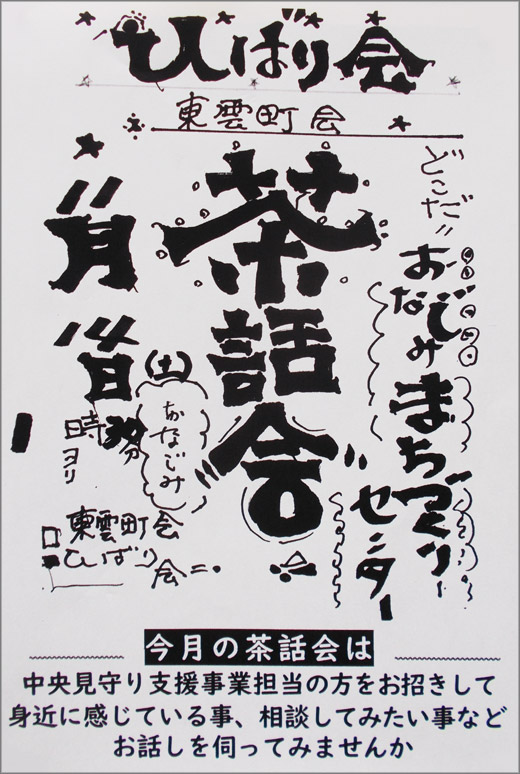 ひばり会
東雲町会
どこだ〃
おなじみ
まちづくり
センター
茶話会
11月
日(土)
おなじみ
1時30分
ヨリ
東雲町会
ひばり会
今月の茶話会は
中央見守り支援事業担当の方をお招きして
身近に感じている事、相談してみたい事など
お話しを伺ってみませんか